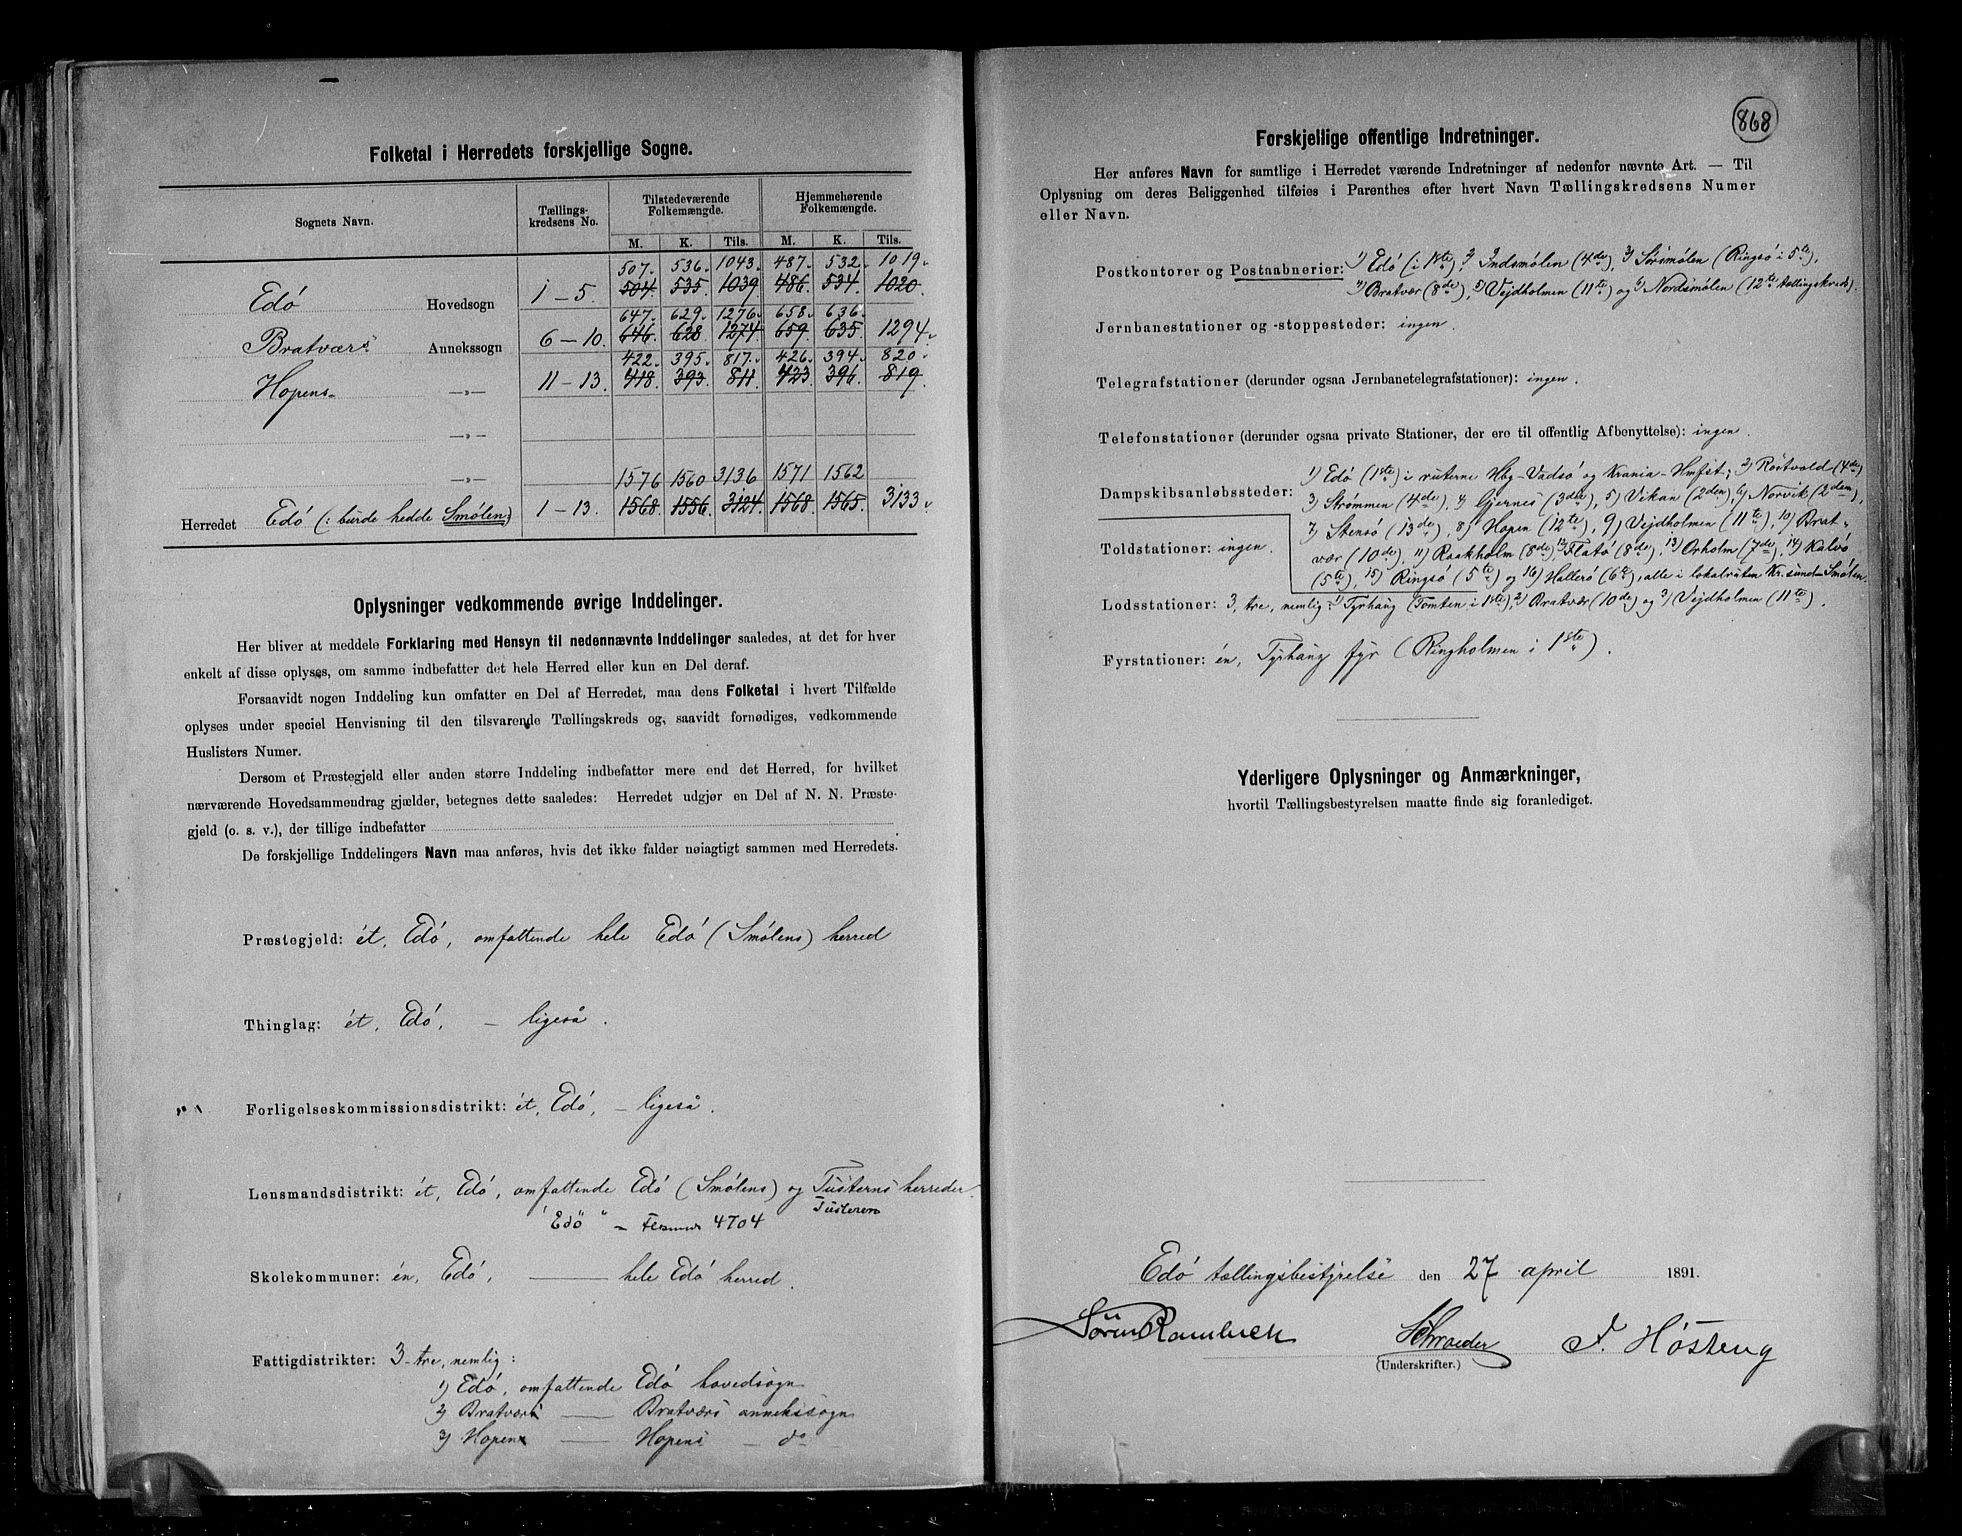 Folketal i Herredets forskjellige Sogne.
Sognets Navn.
Tællings-
kredsens No.
Tilstedeværende
Folkemængde.
Hjemmehørende
Folkemængde.
M. K. Tils. M. K. Tils.
507. 536. 1043. 487. 532. 1019.
Edó Hovedsogn 1-5. 504. 535. 1039 486. 534. 1020.
647. 629. 1276. 658. 636.
Bratværs Annekssogn 6-10. 646. 628 1274. 659. 635. 1294.
422. 395. 817. 426. 394. 820.
Hopens —„— 11-13. 418. 393. 811. 423. 396. 819.
—„—
—„— 1576 1560 3136 1571 1562
Herredet Edó (: burde hedde Smólen) 1-13. 1568. 1556. 3124. 1568. 1565. 3133.
Oplysninger vedkommende øvrige Inddelinger.
Her bliver at meddele Forklaring med Hensyn til nedennævnte Inddelinger saaledes, at det for hver
enkelt af disse oplyses, om samme indbefatter det hele Herred eller kun en Del deraf.
Forsaavidt nogen Inddeling kun omfatter en Del af Herredet, maa dens Folketal i hvert Tilfælde
oplyses under speciel Henvisning til den tilsvarende Tællingskreds og, saavidt fornødiges, vedkommende
Huslisters Numer.
Dersom et Præstegjeld eller anden større Inddeling indbefatter mere end det Herred, for hvilket
nærværende Hovedsammendrag gjælder, betegnes dette saaledes: Herredet udgjør en Del af N. N. Præste-
gjeld (o. s. v.), der tillige indbefatter
De forskjellige Inddelingers Navn maa anføres, hvis det ikke falder nøiagtigt sammen med Herredets.
Præstegjeld: ét, Edó, omfattende hele Edó (Smólens) herred
Thinglag: ét, Edó, — ligeså.
Forligelseskommissionsdistrikt: ét, Edó, — ligeså.
Lensmandsdistrikt: ét, Edó, omfattende Edó (Smólens) og Tusterns herreder.
Tusteren
"Edö" — 4704
Skolekommuner: én, Edó, — hele Edó herred
Fattigdistrikter: 3-tre, nemlig:
1) Edó, omfattende Edó hovedsogn
2) Bratværs — Bratværs annekssogn
3) Hopens — Hopens — do
868
Forskjellige offentlige Indretninger.
Her anføres Navn for samtlige i Herredet værende Indretninger af nedenfor nævnte Art. — Til
Oplysning om deres Beliggenhed tilføies i Parenthes efter hvert Navn Tællingskredsens Numer
eller Navn.
Postkontorer og Postaabnerier: 1) Edó (i 1ste), 2) Indsmólen (4de), 3) Sórsmólen (Ringsó i 5te),
4) Bratvær (8de), 5) Vejdholmen (11te) og 6) Nordsmólen (12te tællingskreds).
Jernbanestationer og -stoppesteder: ingen.
Telegrafstationer (derunder ogsaa Jernbanetelegrafstationer): ingen.
Telefonstationer (derunder ogsaa private Stationer, der ere til offentlig Afbenyttelse): ingen.
Dampskibsanløbssteder: 1) Edó (1ste) i ruterne Hbg-Vadsó og Krania-Hmfst; 2) Róstvold (4de)
3) Strømmen (4de), 4) Gjernes (3die), 5) Vikan (2den), 6) Norvik (2den),
7) Stensó (13de), 8) Hopen (12te), 9) Vejdholmen (11te), 10) Brat-
vær (10de), 11) Raakholm (8de), 12) Flató (8de), 13) Orholm (7de), 14) Kalvó
(5te), 15) Ringsó (5te) og 16) Halleró (6te), alle i lokalruten Kr.sund-Smólen.
Toldstationer: ingen.
Lodsstationer: 3, tre, nemlig: 1) Tyrhaug (Tomten i 1ste), 2) Bratvær (10de) og 3) Vejdholmen (11te).
Fyrstationer: én, Tyrhaug fyr (Ringholmen i 1ste).
Yderligere Oplysninger og Anmærkninger,
hvortil Tællingsbestyrelsen maatte finde sig foranlediget.
Edó tællingsbestyrelse den 27 april 1891.
Sören Rambech Schroeder J. Hósteng
(Underskrifter.)